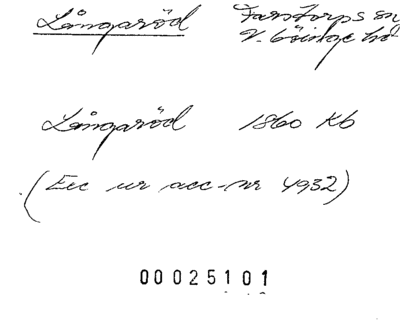 Långaröd Farstorps sn
V. Göinge hd
Långaröd 1860 Kb
(Exc ur acc-nr 4932)
00025101